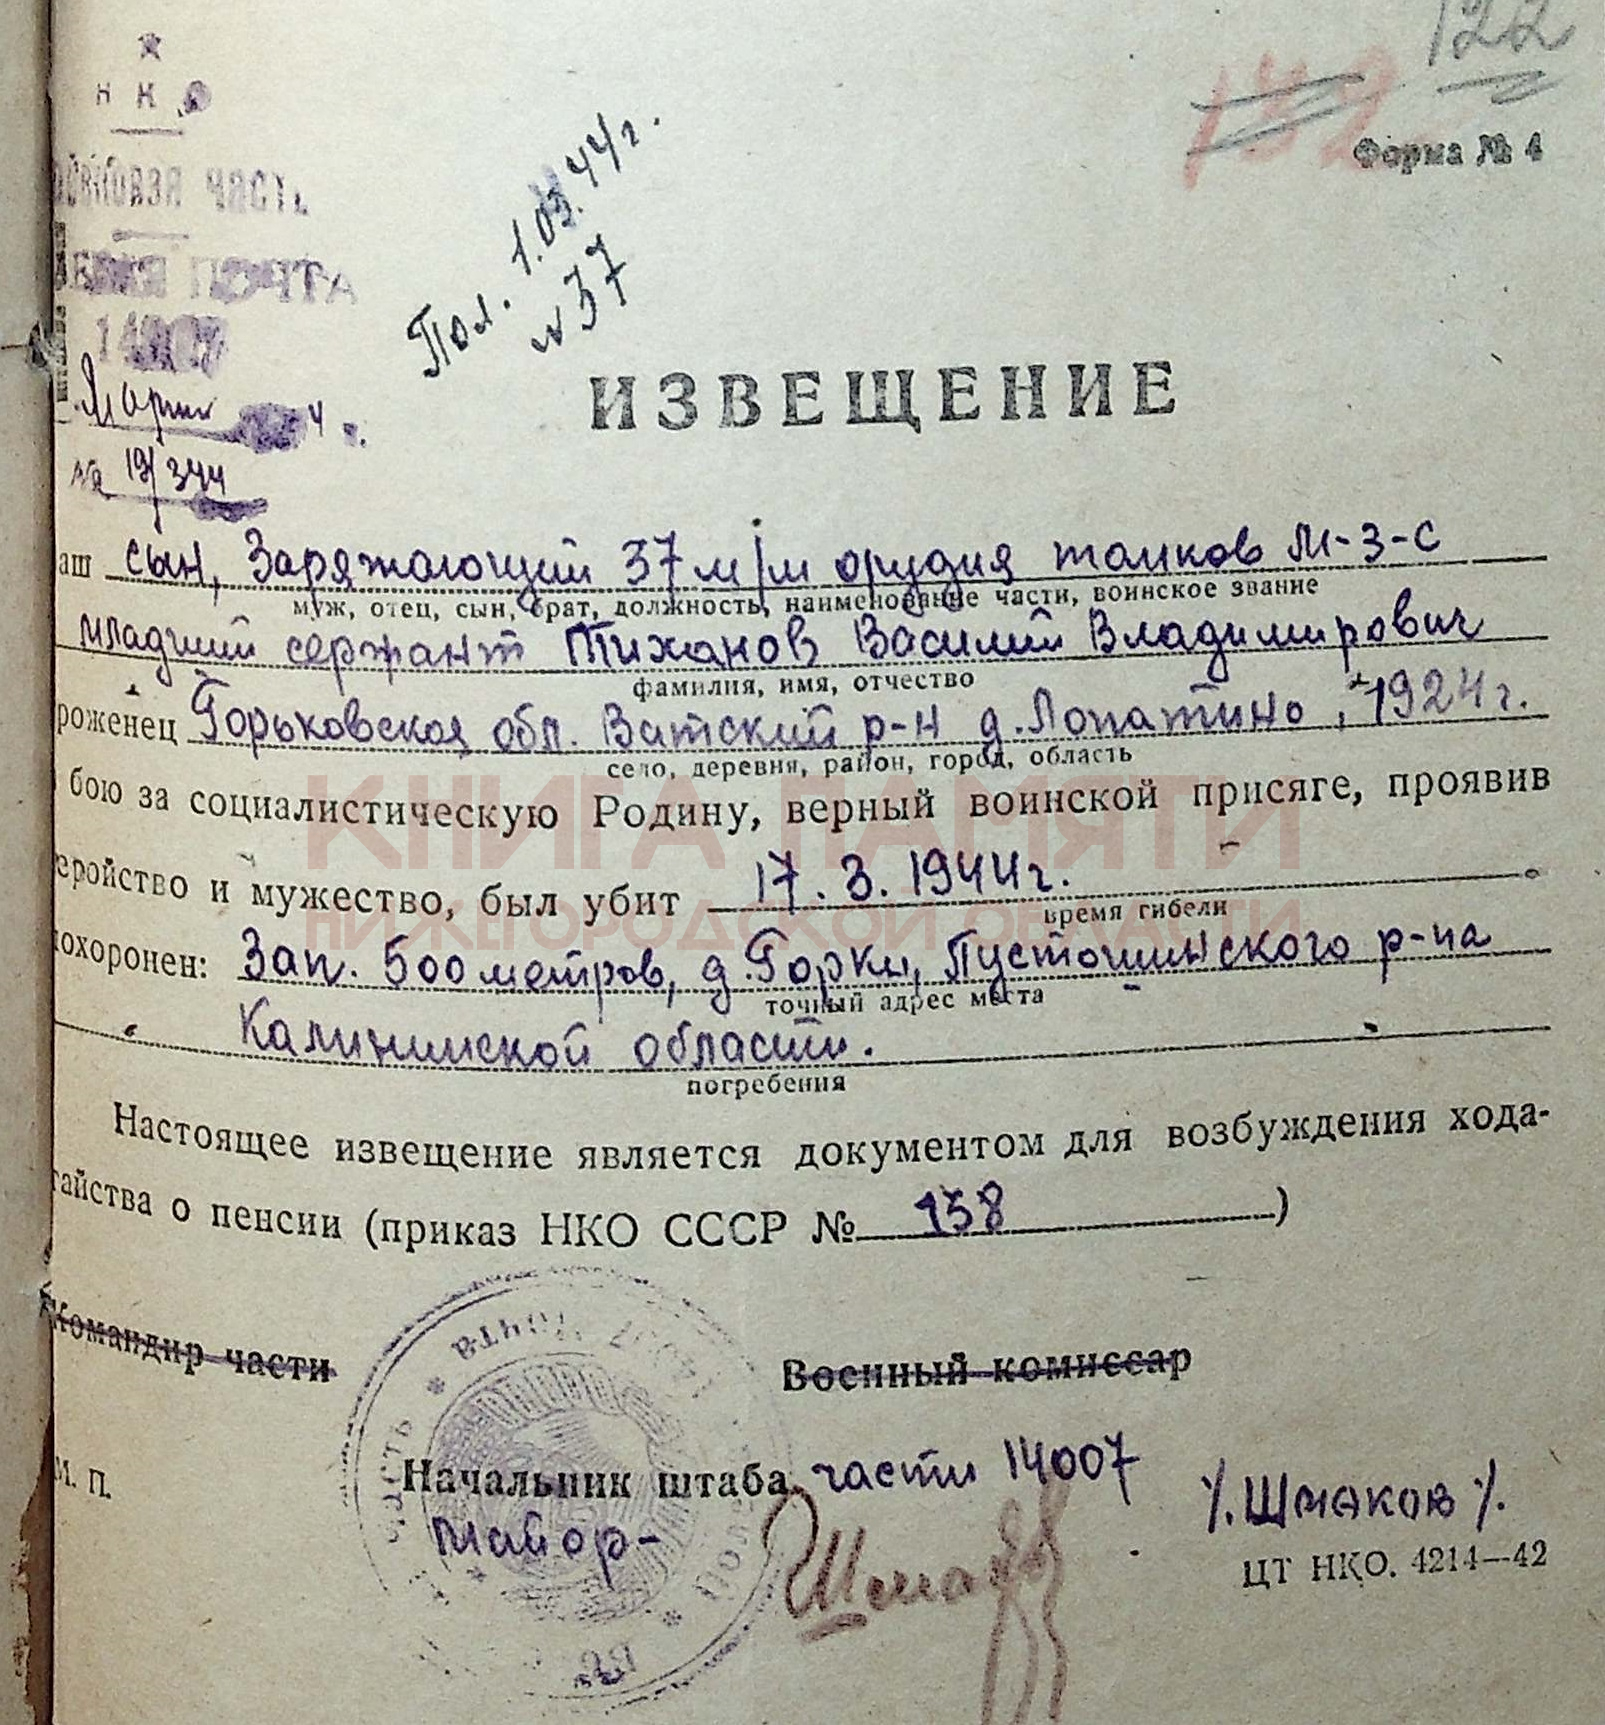 122
132
Форма № 4
Н К О
войсковая часть
ПОЧТА
Пол. 1.03.44г.
№37
Марта 4 г.
№ 19/344
ИЗВЕЩЕНИЕ
аш сын, Заряжающий 37 м/м орудия танков М-3-С
муж, отец, сын, брат, должность, наименование части, воинское звание
младший сержант Тиханов Василий Владимирович
фамилия, имя, отчество
роженец Горьковская обл. Ватский р-н д. Лопатино, 1924г.
село, деревня, район, город, область
бою за социалистическую Родину, верный воинской присяге, проявив
еройство и мужество, был убит 17.3.1944г.
время гибели
похоронен: Зап. 500 метров, д. Горки, Пустошинского р-на
точный адрес места
Калининской области.
погребения
Настоящее извещение является документом для возбуждения хода-
тайства о пенсии (приказ НКО СССР № 138)
Командир части
Военный комиссар
М. П.
Начальник штаба части 14007
майор-
Шмаков
/.Шмаков/.
ЦТ НКО. 4214—42
КНИГА ПАМЯТИ
НИЖЕГОРОДСКОЙ ОБЛАСТИ